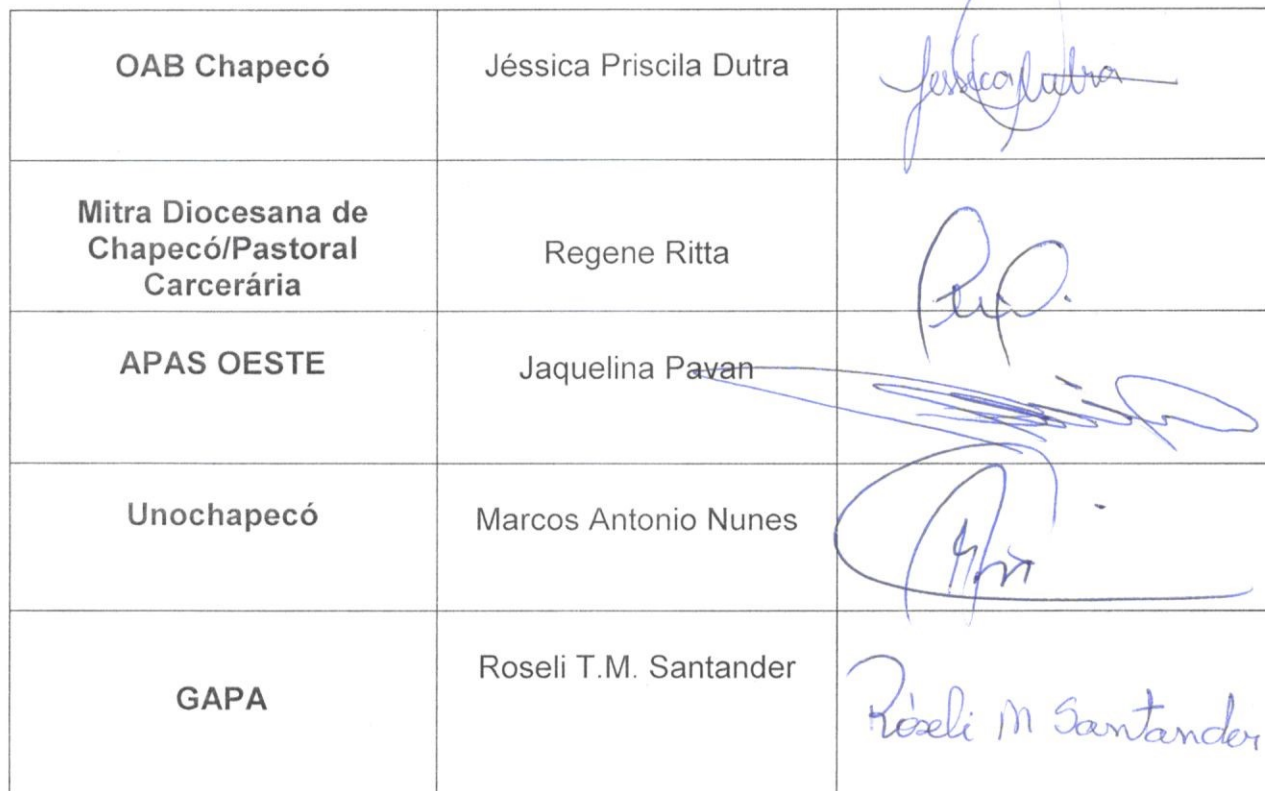 OAB Chapecó
Jéssica Priscila Dutra
Jessica Dutra
Mitra Diocesana de
Chapecó/Pastoral
Carcerária
Regene Ritta
APAS OESTE
Jaquelina Pavan
Unochapecó
Marcos Antonio Nunes
GAPA
Roseli T.M. Santander
Róseli M Santander